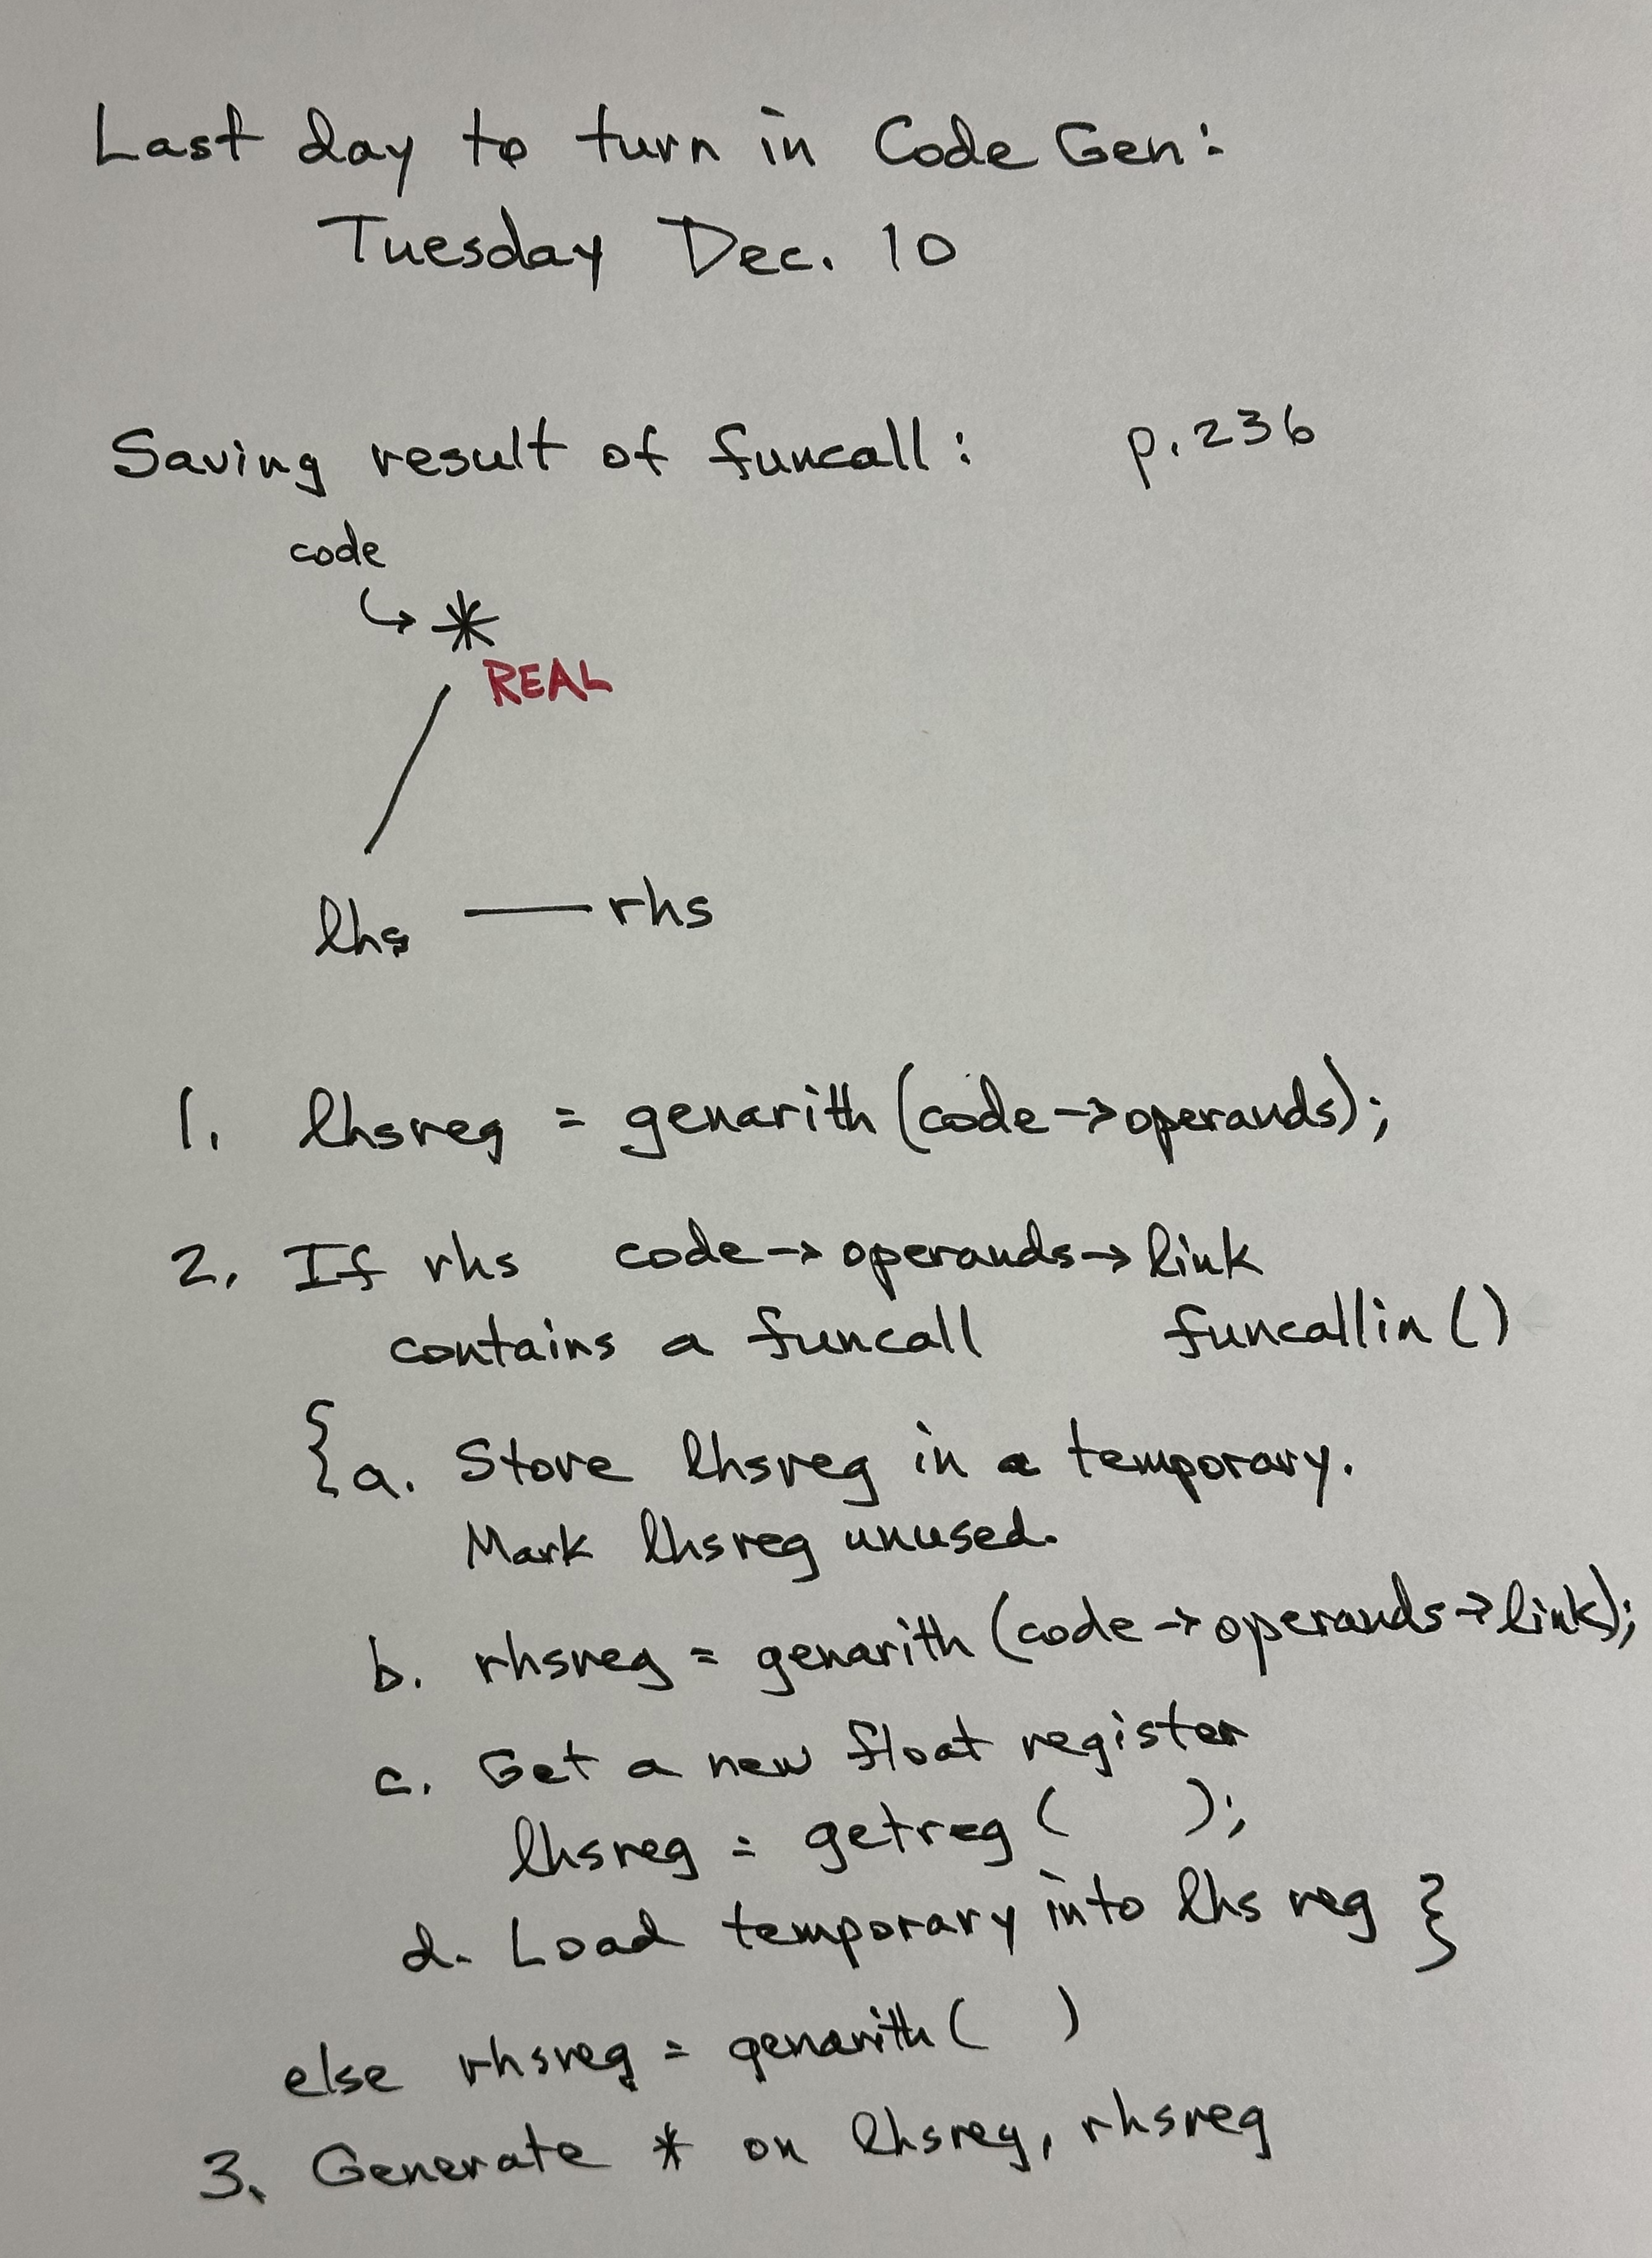 Last day to turn in Code Gen:
Tuesday Dec. 10
Saving result of funcall: p.236
code
↳ *
REAL
lhs — rhs
1. lhsreg = genarith(code->operands);
2. If rhs code->operands->link
contains a funcall funcallin()
{a. Store lhsreg in a temporary.
Mark lhsreg unused.
b. rhsreg = genarith(code->operands->link);
c. Get a new float register
lhsreg = getreg( );
d. Load temporary into lhs reg }
else rhsreg = genarith( )
3. Generate * on lhsreg, rhsreg